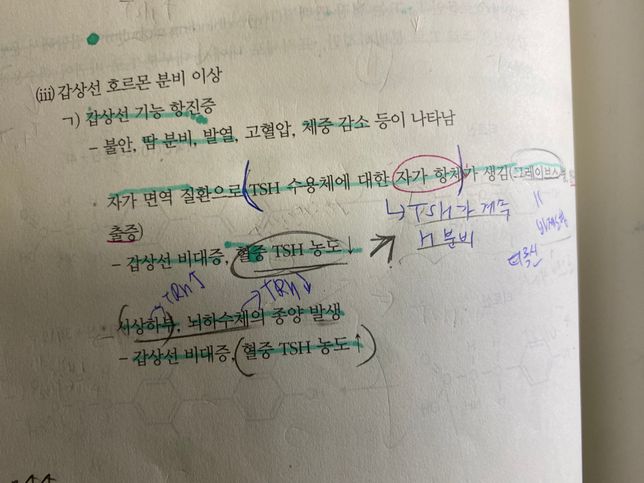 (iii) 갑상선 호르몬 분비 이상
ㄱ) 갑상선 기능 항진증
- 불안, 땀 분비, 발열, 고혈압, 체중 감소 등이 나타남
자가 면역 질환으로 TSH 수용체에 대한 자가 항체가 생김(그레이브스
↳ TSH가 계속
출증)
분비
- 갑상선 비대증, 혈중 TSH 농도↓
TRH↑
TRH↓
시상하부, 뇌하수체의 종양 발생
- 갑상선 비대증, 혈중 TSH 농도↑